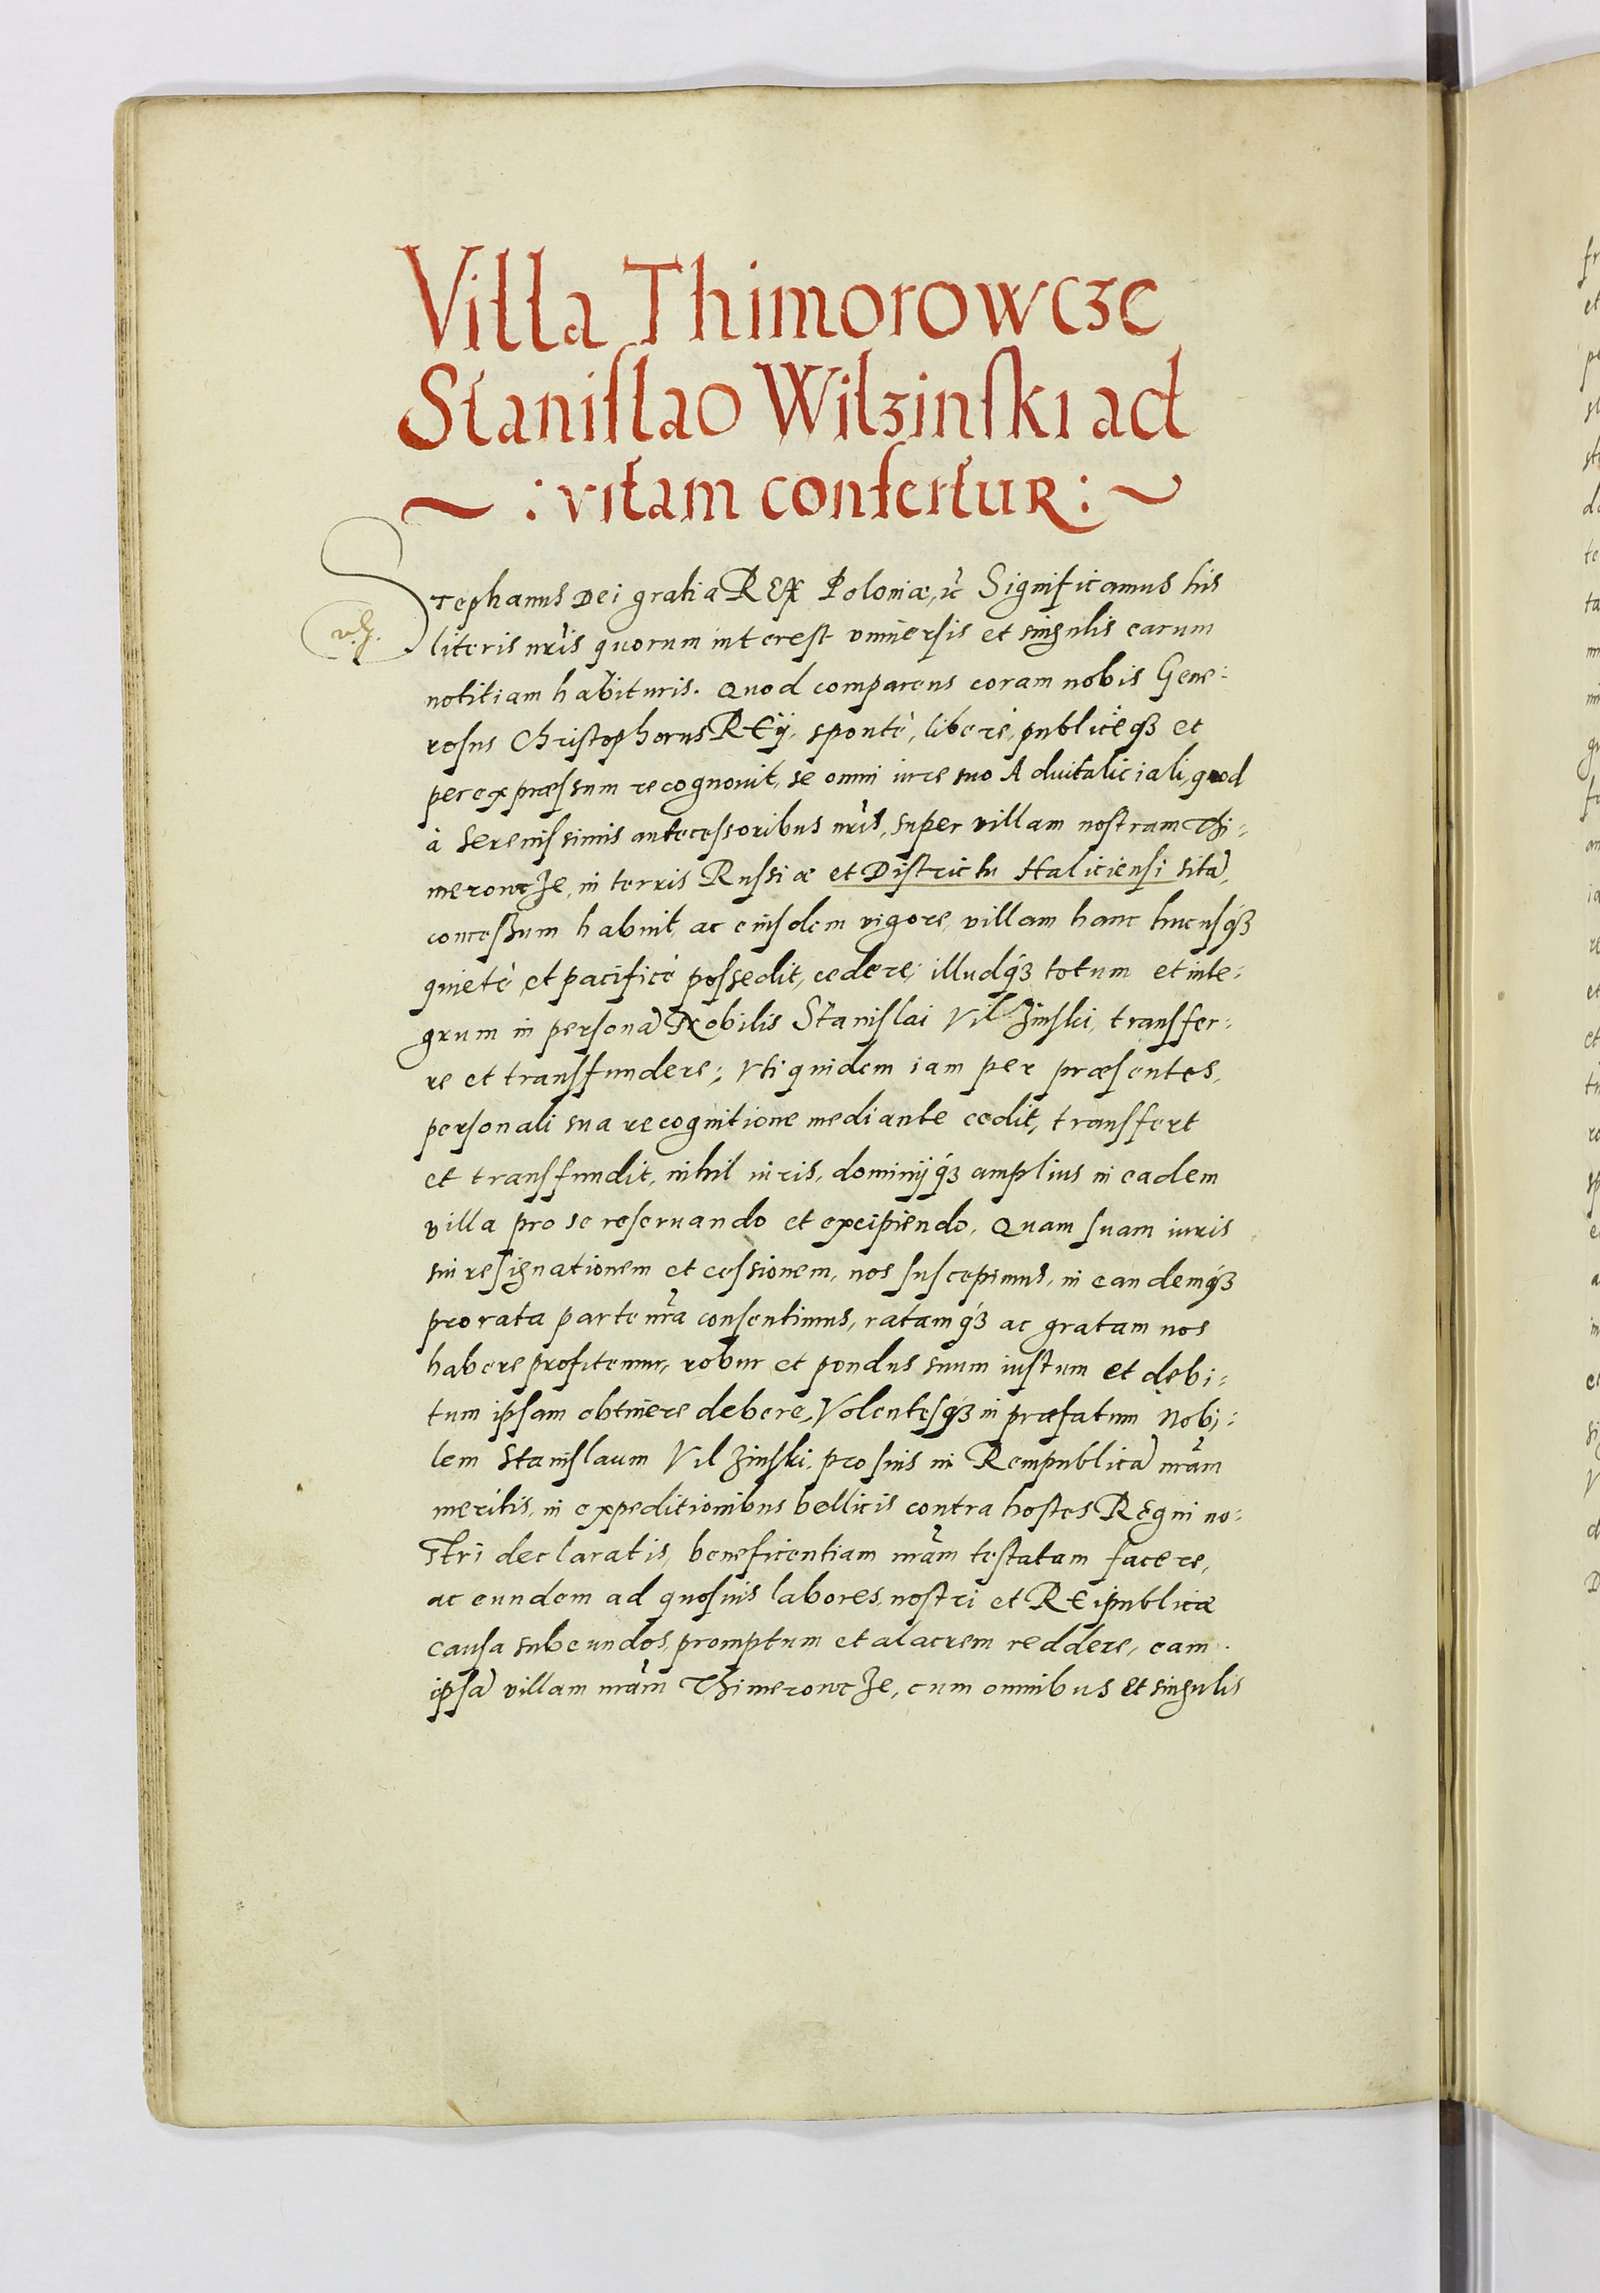 Villa Thimorowcze
Stanislao Wilzinski ad
~ : vitam confertur : ~
Stephanus Dei gratia REX Poloniæ, ꝛc̃ Significamus his
literis nr̃is quorum interest vniuersis et singulis earum
notitiam habituris. Quod comparens coram nobis Gene:
rosus Christophorus REÿ, spontè, liberè, publicèq3 et
per expræssum recognouit, se omni iure suo Aduitaliciali, quod
à serenissimis antecessoribus nr̃is, super villam nostram Thi:
merowcze, in terris Russiæ et Districtu Haliciensi sitã,
concessum habuit, ac eiusdem vigore, villam hanc hucusq3
quietè et pacificè possedit, cedere; illudq3 totum et inte:
grum in personã Nobilis Stanislai Vilzinski, transfer:
re et transfundere; Vti quidem iam per præsentes,
personali sua recognitione mediante cedit, transfert
et transfundit, nihil iuris, dominijq3 amplius in eadem
villa pro se reseruando et excipiendo. Quam suam iuris
sui resignationem et cessionem, nos suscepimus, in eandemq3
pro rata parte nr̃a consentimus, ratamq3 ac gratam nos
habere profitemur, robur et pondus suum iustum et debi:
tum ipsam obtinere debere, Volentesq3 in præfatum Nobi:
lem Stanislaum Vilzinski, pro suis in Rempublicã nr̃am
meritis, in expeditionibus bellicis contra hostes Regni no:
stri declaratis, beneficentiam nr̃am testatam facere,
ac eundem ad quosuis labores, nostri et REipublicæ
causa subeundos, promptum et alacrem reddere, eam
ipsã villam nr̃am Thimerowcze, cum omnibus et singulis